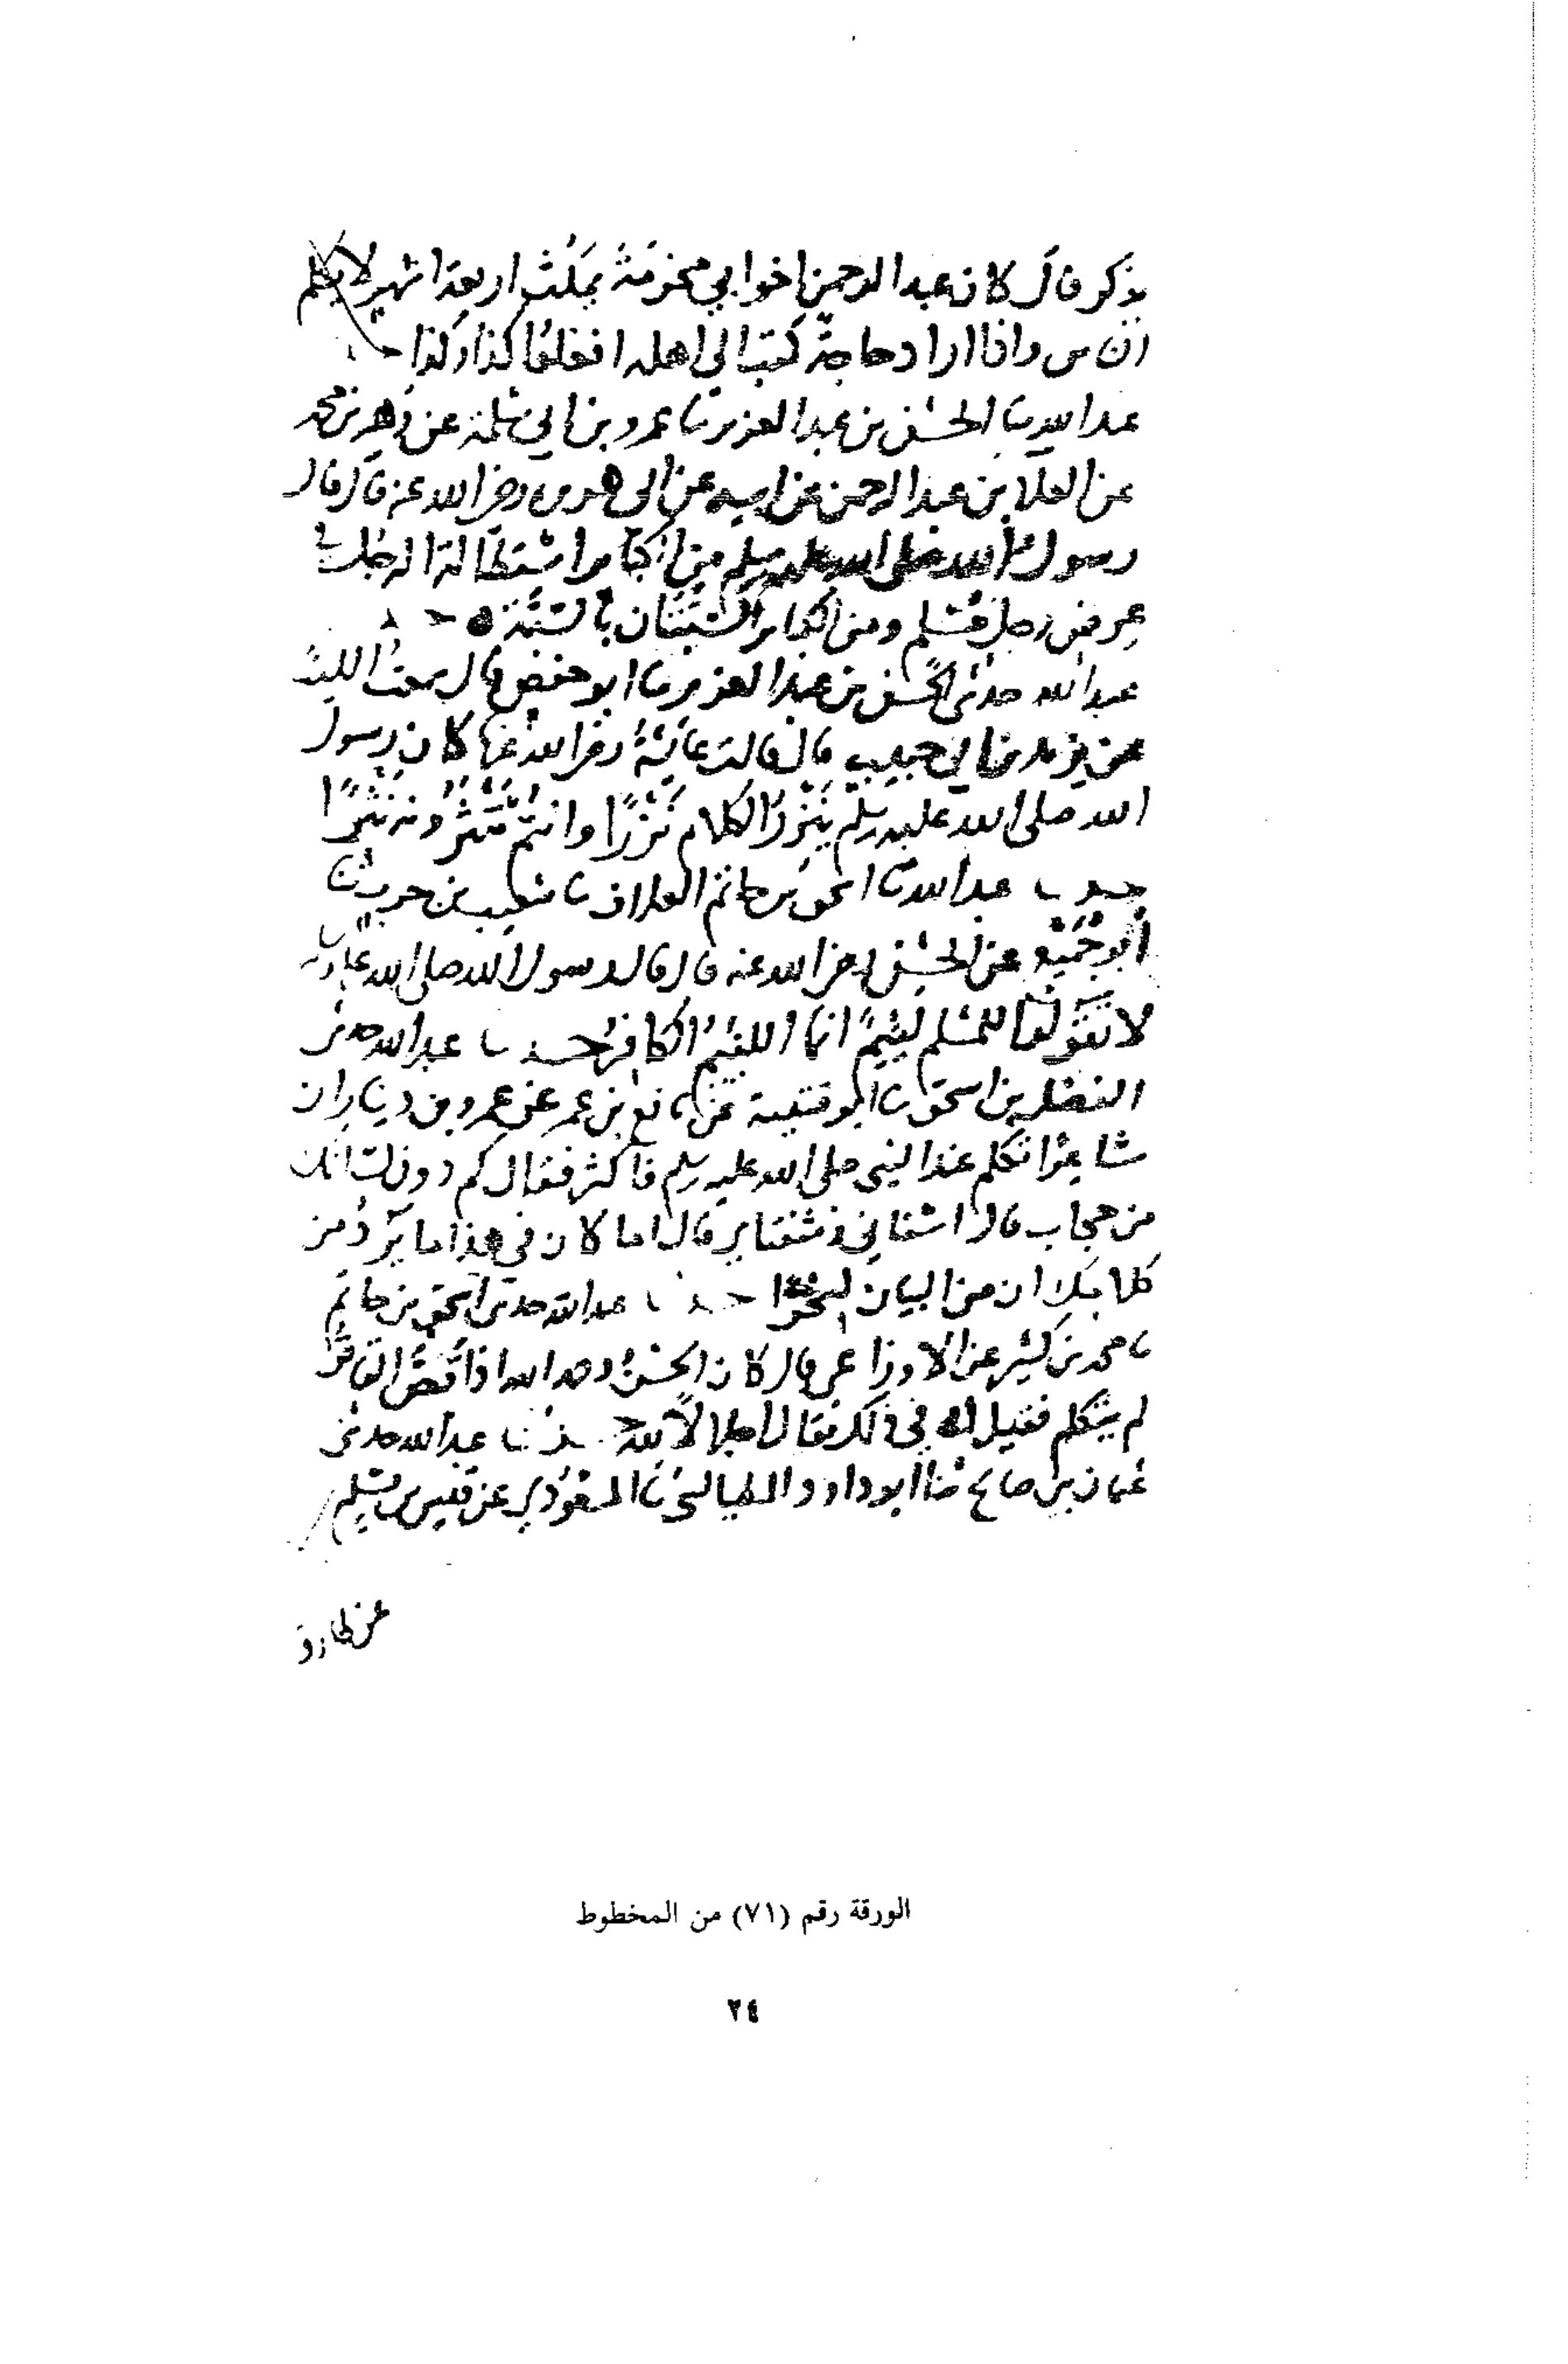 يذكر قال كان عبد الرحمن اخو ابي مخرمة يمكث اربعة اشهر لا يكلم
الناس واذا اراد حاجة كتب الى اهله افعلوا كذا وكذا
عبد الله نا الحسن بن عبد العزيز نا عمرو بن ابي سلمة عن زهير بن محمد
عن العلا بن عبد الرحمن عن ابيه عن ابي هريرة رضي الله عنه قال قال
رسول الله صلى الله عليه وسلم من الكبائر استطالة الرجل في
عرض رجل مسلم ومن الكبائر السبتان بالسبة
عبد الله حدثني الحسن بن عبد العزيز نا ابو حفص قال سمعت الليث
عن يزيد بن ابي حبيب قال قالت عائشة رضي الله عنها كان رسول
الله صلى الله عليه وسلم ينزر الكلام نزرا وانتم تنثرونه نثرا
حدثنا عبد الله نا اسحق بن حاتم العلاف نا شعيب بن حرب نا
ابو جميع عن الحسن رضي الله عنه قال قال رسول الله صلى الله عليه وسلم
لا تقولوا للمسلم لئيم انما اللئيم الكافر حدثنا عبد الله حدثني
الفضل بن اسحق نا ابو قتيبة عن نافع بن عمر عن عمرو بن دينار ان
شاعرا تكلم عند النبي صلى الله عليه وسلم فاكثر فقال كم دون لسانك
من حجاب قال اسناني وشفتاي قال اما كان في هذا ما يرد من
كلامك ان من البيان لسحرا حدثنا عبد الله حدثني اسحق بن حاتم
نا محمد بن كثير عن الاوزاعي قال كان الحسن رحمه الله اذا قص القاص
لم يتكلم فقيل له في ذلك فقال اجلالا لله حدثنا عبد الله حدثني
عثمان بن صالح ثنا ابو داود الطيالسي نا المسعودي عن قيس بن مسلم
عن طارق
الورقة رقم (٧١) من المخطوط
٢٤